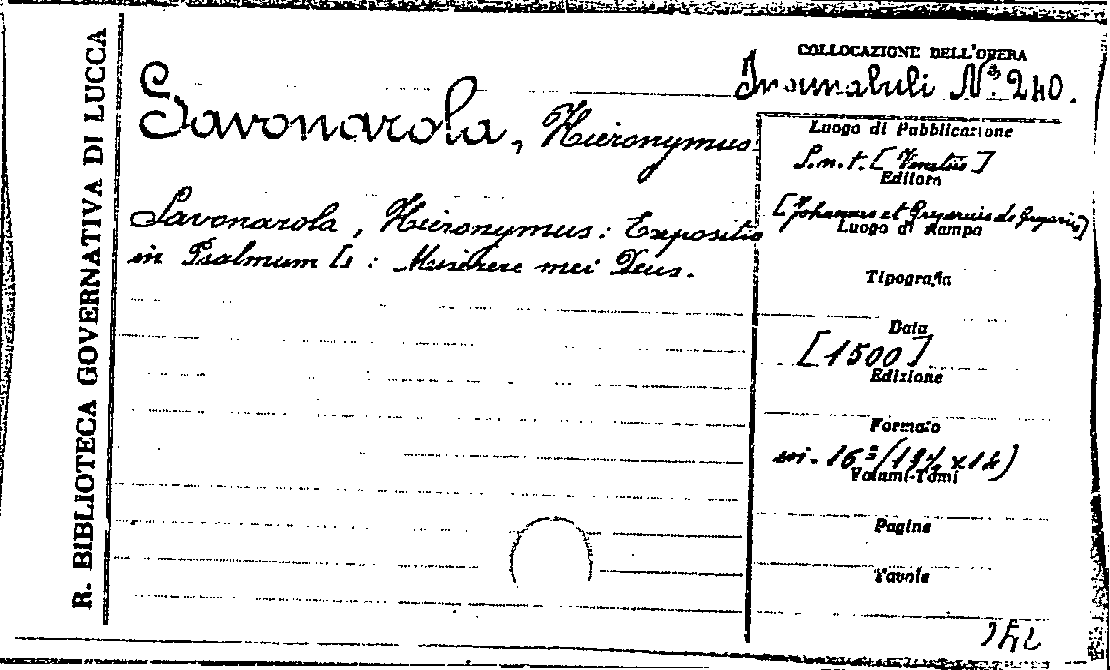 R. BIBLIOTECA GOVERNATIVA DI LUCCA
COLLOCAZIONE DELL'OPERA
Incunabuli N.º 240.
Savonarola, Hieronymus
Savonarola, Hieronymus: Expositio
in Psalmum L: Miserere mei Deus.
Luogo di Pubblicazione
S.n.t. [Venetiis]
Editore
[Johannes et Gregorius de Gregoriis]
Luogo di stampa
Tipografia
Data
[1500]
Edizione
Formato
in-16º
Volumi-Tomi
Pagine
Tavole